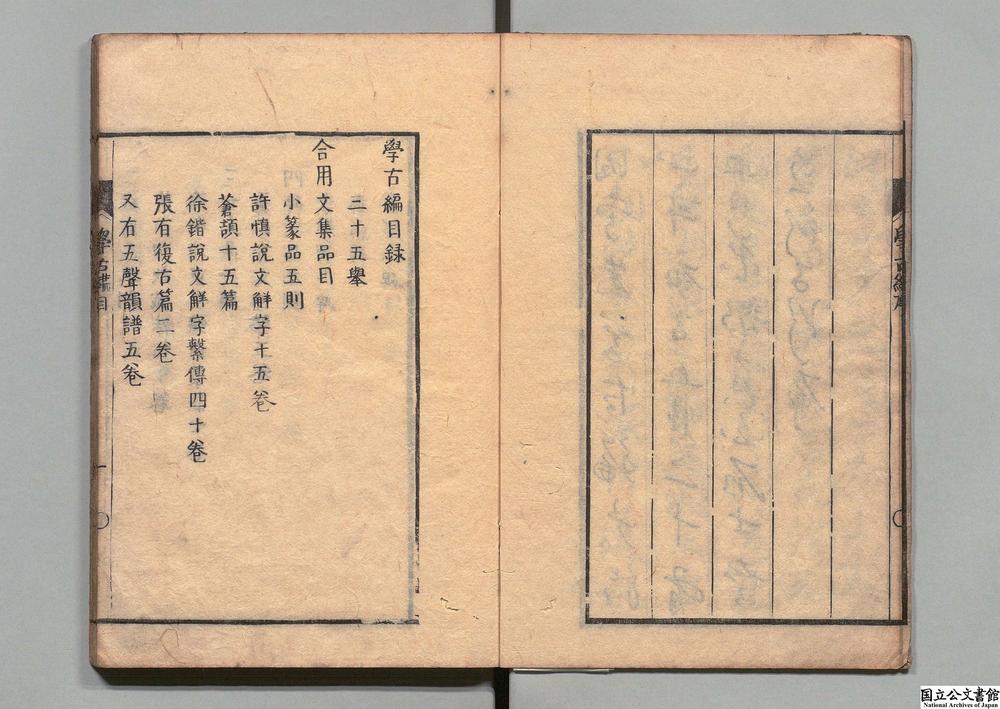 學古編目録
三十五舉
合用文集品目
小篆品五則
許慎說文觧字十五卷
蒼頡十五篇
徐鍇說文觧字繫傳四十卷
張有復古篇二卷
又右五聲韻譜五卷
學古編目
一
學古編序
国立公文書館
National Archives of Japan